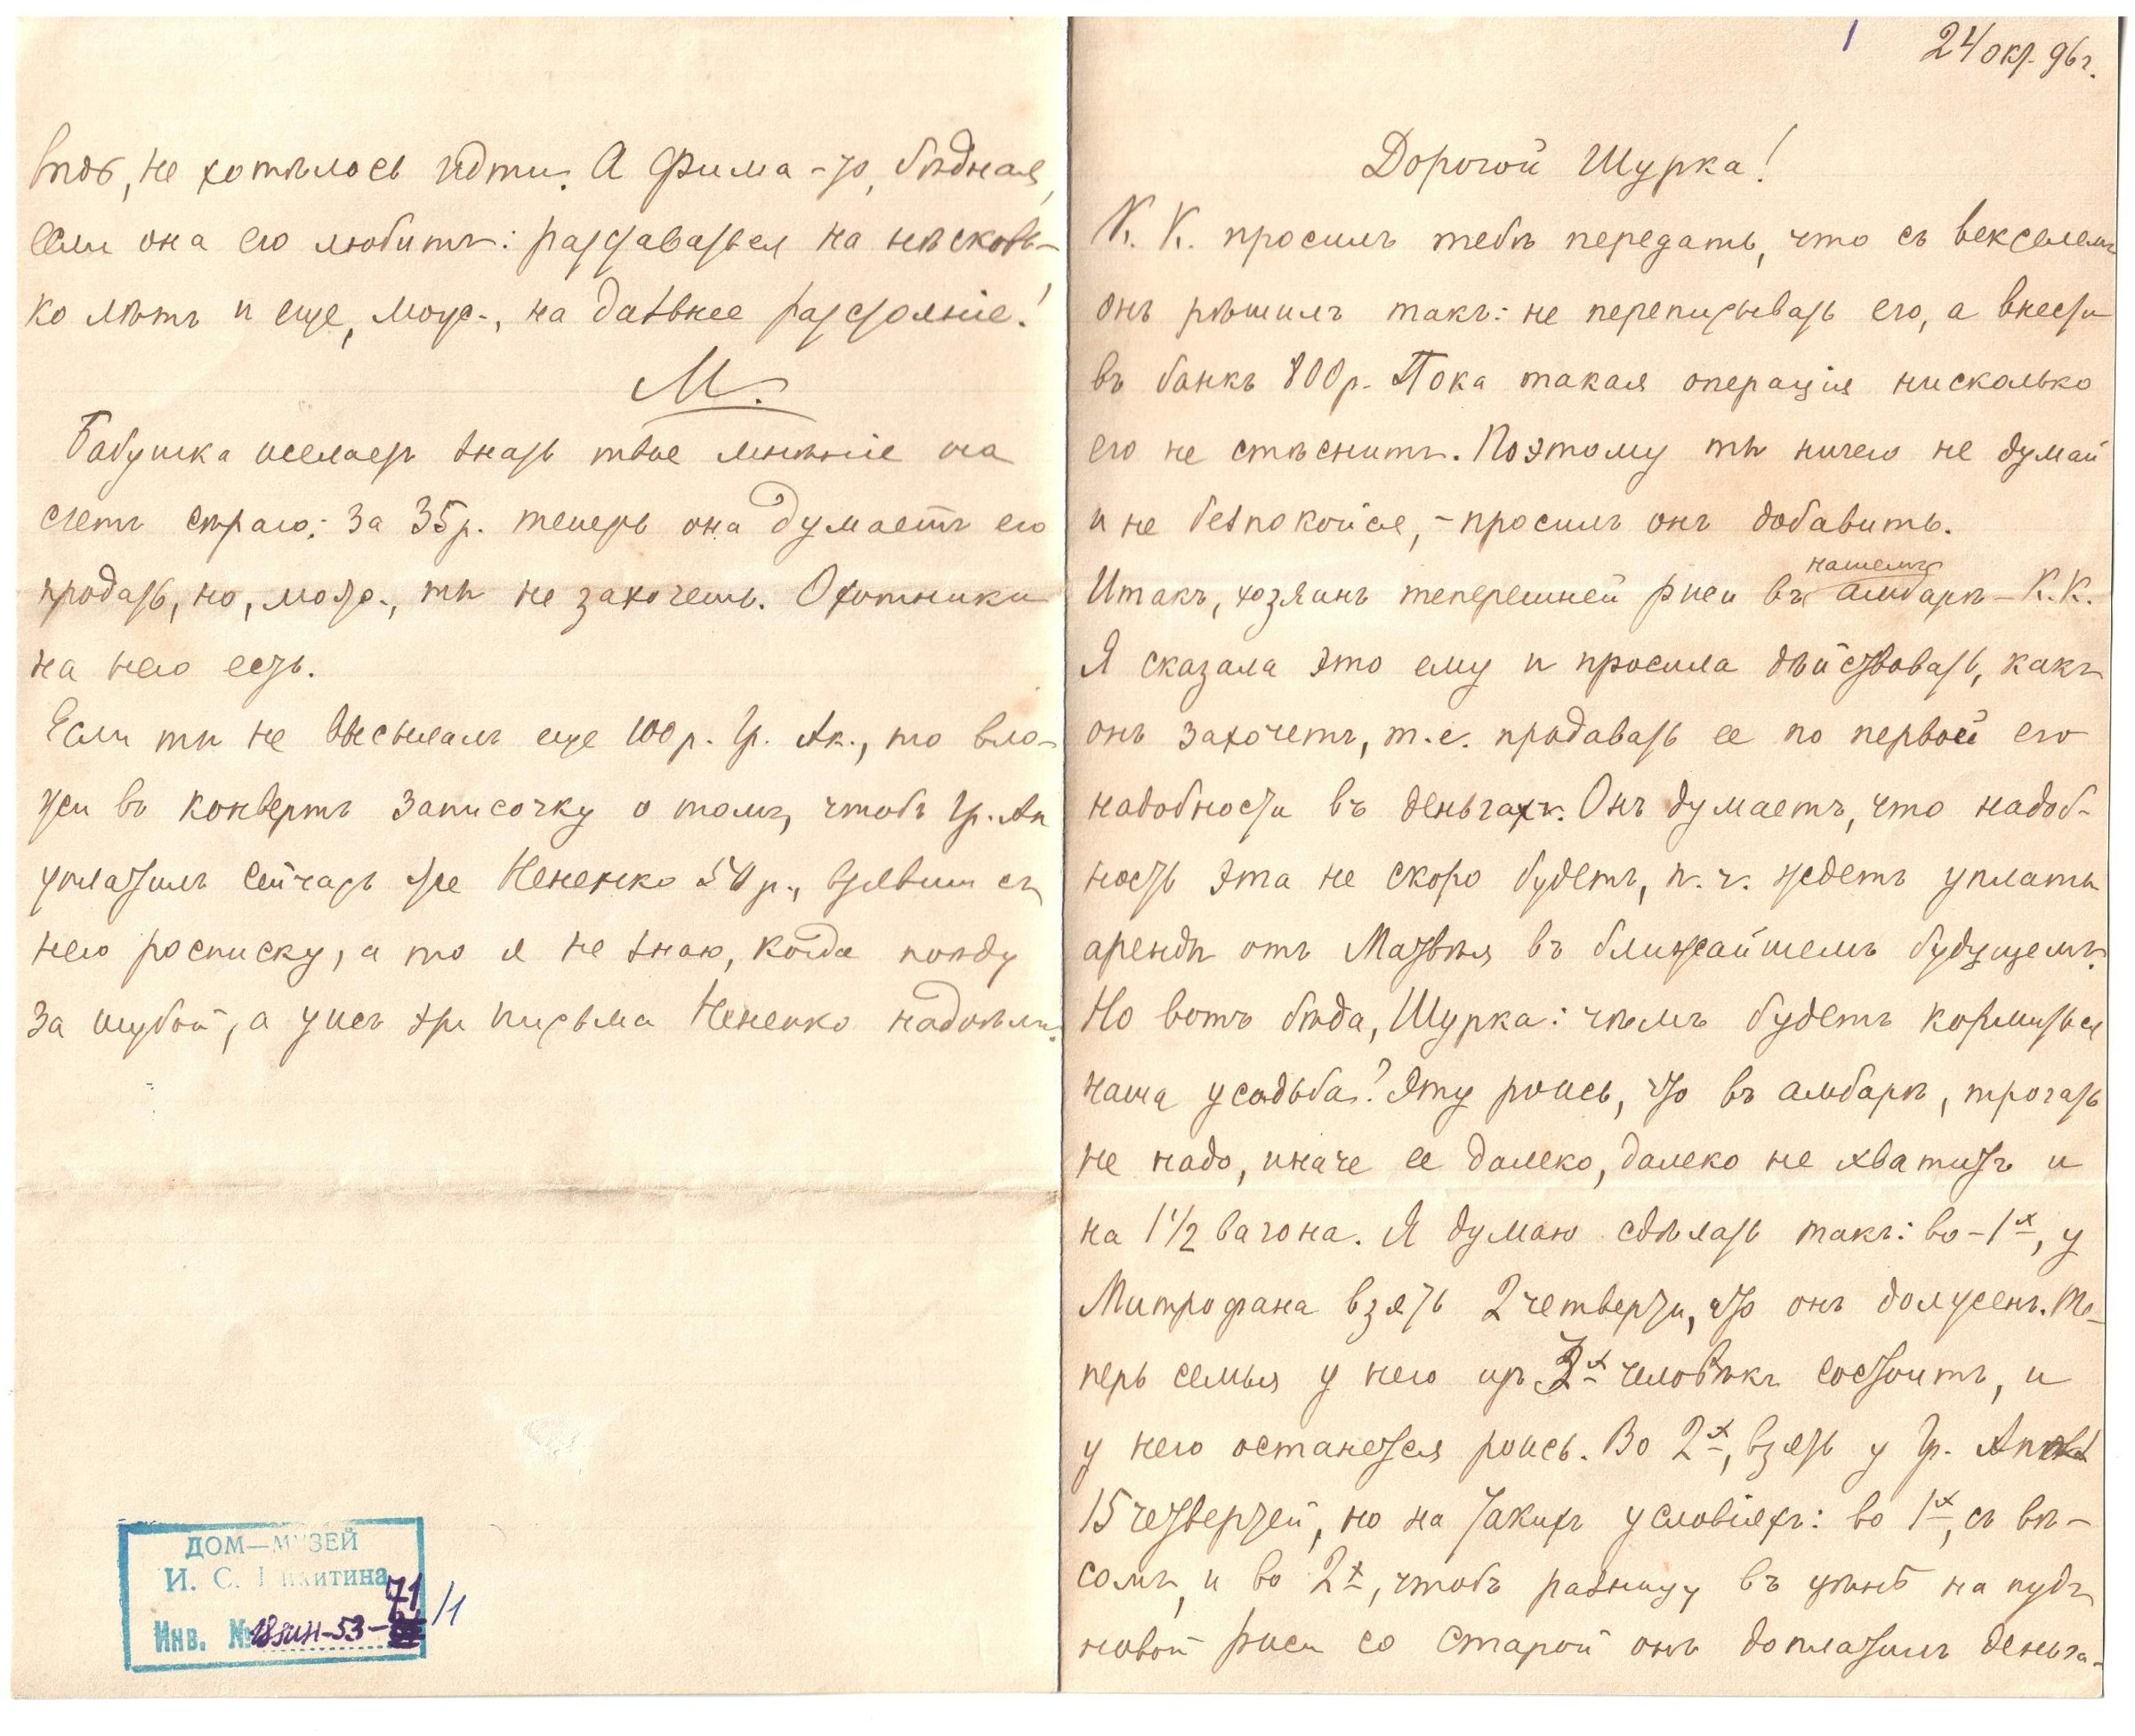 1
24 окт. 96 г.
Дорогой Шурка!
К. К. просилъ тебѣ передать, что съ векселемъ
онъ рѣшилъ такъ: не переписывать его, а внести
въ банкъ 800 р. Пока такая операція нисколько
его не стѣснитъ. Поэтому ты ничего не думай
и не безпокойся, - просилъ онъ добавить.
Итакъ, хозяинъ теперешней ржи въ нашемъ амбарѣ - К. К.
Я сказала это ему и просила дѣйствовать, какъ
онъ захочетъ, т. е. продавать ее по первой его
надобности въ деньгахъ. Онъ думаетъ, что надоб-
ность эта не скоро будетъ, п. ч. ждетъ уплаты
аренды отъ Матвѣя въ ближайшемъ будущемъ.
Но вотъ бѣда, Шурка: чѣмъ будетъ кормиться
наша усадьба? Эту рожь, что въ амбарѣ, трогать
не надо, иначе ее далеко, далеко не хватитъ и
на 1 1/2 вагона. Я думаю сдѣлать такъ: во-1х, у
Митрофана взять 2 четверти, что онъ долженъ. Те-
перь семья у него изъ 3х человѣкъ состоитъ, и
у него останется рожь. Во 2х, взять у Гр. Ап.
15 четвертей, но на такихъ условіяхъ: во 1х, съ вѣ-
сомъ, и во 2х, чтобъ разницу въ цѣнѣ на пудъ
новой ржи со старой онъ доплатилъ деньга-
втоб, не хотѣлось идти. А Фима-то, бѣдная,
если она его любитъ: разставаться на нѣсколь-
ко лѣтъ и еще, можт., на дальнее разстояніе!
М.
Бабушка желаетъ знать твое мнѣніе на
счетъ сѣраго: за 35 р. теперь она думаетъ его
продать, но, можт., ты не захочешь. Охотники
на него есть.
Если ты не высылалъ еще 100 р. Гр. Ап., то вло-
жи въ конвертъ записочку о томъ, чтобъ Гр. Ап
уплатилъ сейчасъ же Нененко 50 р., взявши съ
него росписку, а то я не знаю, когда поѣду
за шубой, а ужъ три письма Нененко надоѣли.
ДОМ—МУЗЕЙ
И. С. Никитина
Инв. № 71/1